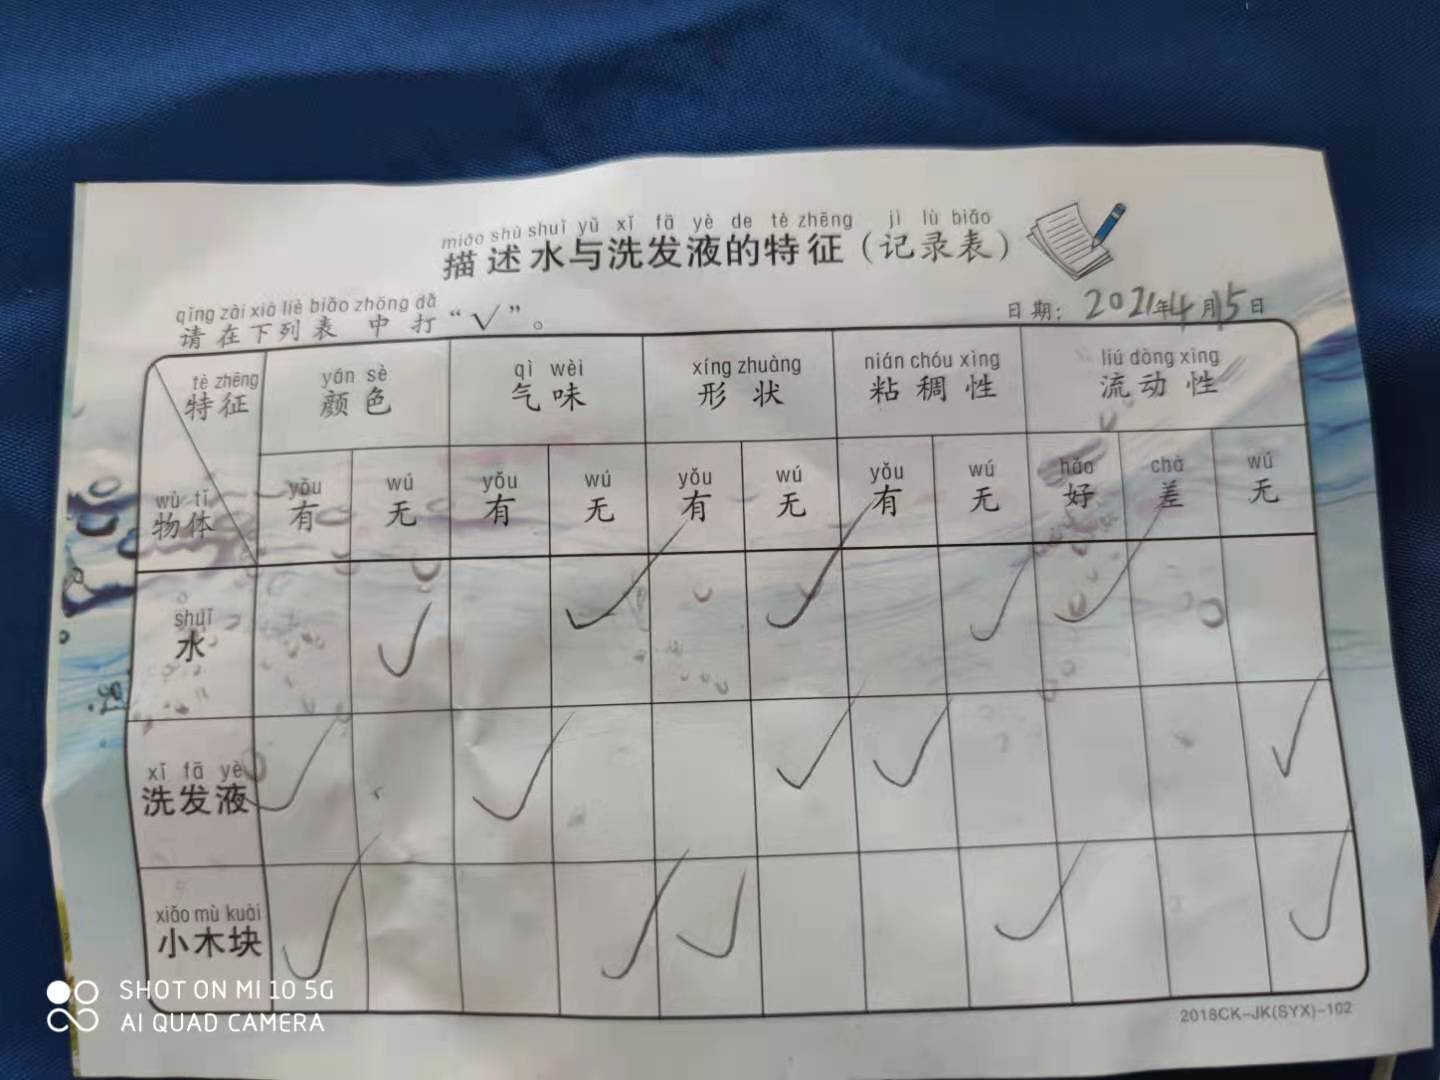 miáo shù shuǐ yǔ xǐ fā yè de tè zhēng jì lù biǎo
描述水与洗发液的特征（记录表）
qǐng zài xià liè biǎo zhōng dǎ
请在下列表中打“√”。
日期：2021年4月15日
tè zhēng
特征
wù tǐ
物体
yán sè
颜色
qì wèi
气味
xíng zhuàng
形状
nián chóu xìng
粘稠性
liú dòng xìng
流动性
yǒu wú yǒu wú yǒu wú yǒu wú hǎo chà wú
有 无 有 无 有 无 有 无 好 差 无
shuǐ
水 √ √ √ √ √
xǐ fā yè
洗发液 √ √ √ √ √
xiǎo mù kuài
小木块 √ √ √ √ √
2018CK-JK(SYX)-102
SHOT ON MI 10 5G
AI QUAD CAMERA